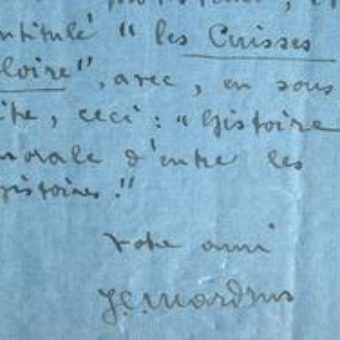 ntitulé "les Cuisses
loire", avec, en sous
itre, ceci : "histoire
morale d'entre les
histoires."
Votre ami
J.C. Mardrus